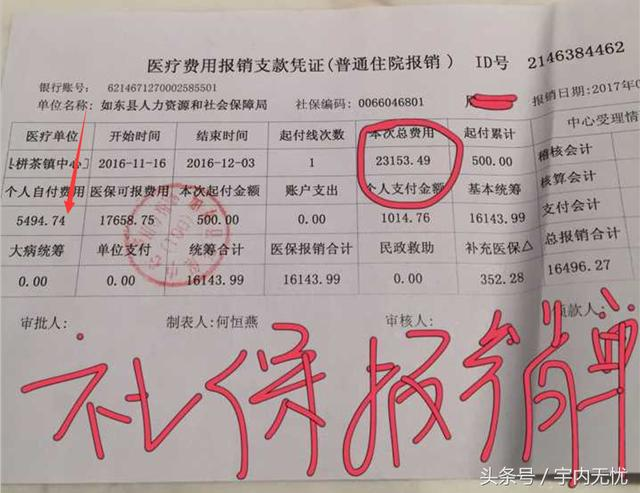 医疗费用报销支款凭证(普通住院报销) ID号 2146384462
银行账号: 6214671270002585501
单位名称: 如东县人力资源和社会保障局 社保编码: 0066046801 报销日期:2017年0
医疗单位 开始时间 结束时间 起付线次数 本次总费用 起付累计 中心受理情
栟茶镇中心 2016-11-16 2016-12-03 1 23153.49 500.00 稽核会计
个人自付费用 医保可报费用 本次起付金额 账户支出 个人支付金额 基本统筹 核算会计
5494.74 17658.75 500.00 0.00 1014.76 16143.99 支付会计
大病统筹 单位支付 统筹合计 医保报销合计 民政救助 补充医保△ 总报销合计
0.00 0.00 16143.99 16143.99 0.00 352.28 16496.27
审批人: 制表人:何恒燕 审核人: 领款人:
社保报销单
头条号 / 宇内无忧